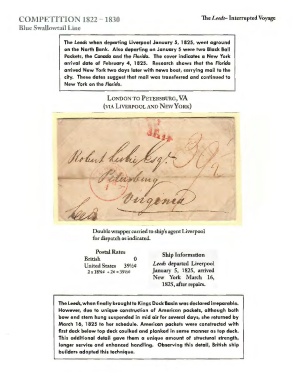 COMPETITION 1822 – 1830
Blue Swallowtail Line
The Leeds - Interrupted Voyage
The Leeds when departing Liverpool January 5, 1825, went aground
on the North Bank. Also departing on January 5 were two Black Ball
Packets, the Canada and the Florida. The cover indicates a New York
arrival date of February 4, 1825. Research shows that the Florida
arrived New York two days later with news boat, carrying mail to the
city. These dates suggest that mail was transferred and continued to
New York on the Florida.
LONDON TO PETERSBURG, VA
(VIA LIVERPOOL AND NEW YORK)
SHIP
Robert Leslie Esqr
Petersburg
Virginia
Leeds
Double wrapper carried to ship's agent Liverpool
for dispatch as indicated.
Postal Rates
British 0
United States 39½¢
2 x 18¾¢ + 2¢ = 39½¢
Ship Information
Leeds departed Liverpool
January 5, 1825, arrived
New York March 16,
1825, after repairs.
The Leeds, when finally brought to Kings Dock Basin was declared irreparable.
However, due to unique construction of American packets, although both
bow and stern hung suspended in mid air for several days, she returned by
March 16, 1825 to her schedule. American packets were constructed with
first deck below top deck caulked and planked in same manner as top deck.
This additional detail gave them a unique amount of structural strength,
longer service and enhanced handling. Observing this detail, British ship
builders adopted this technique.